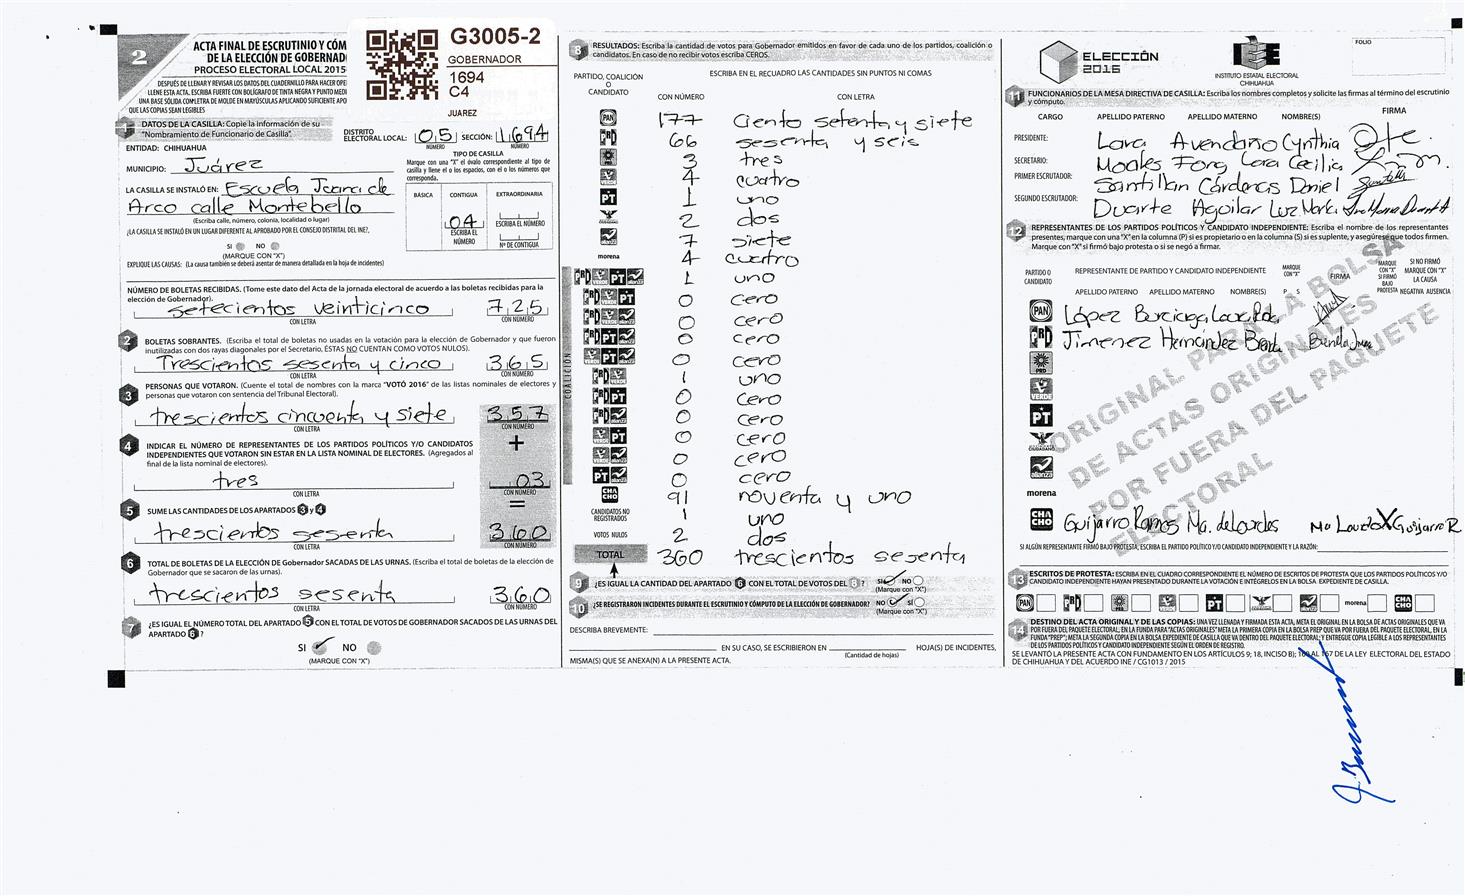 2
ACTA FINAL DE ESCRUTINIO Y CÓM
DE LA ELECCIÓN DE GOBERNAD
PROCESO ELECTORAL LOCAL 2015
DESPUÉS DE LLENAR Y REVISAR LOS DATOS DEL CUADERNILLO PARA HACER OPE
LLENE ESTA ACTA. ESCRIBA FUERTE CON BOLÍGRAFO DE TINTA NEGRA Y PUNTO MEDI
UNA BASE SÓLIDA CON LETRA DE MOLDE EN MAYÚSCULAS APLICANDO SUFICIENTE APO
QUE LAS COPIAS SEAN LEGIBLES
G3005-2
GOBERNADOR
1694
C4
JUAREZ
1 DATOS DE LA CASILLA: Copie la información de su
"Nombramiento de Funcionario de Casilla".
DISTRITO ELECTORAL LOCAL: 05 SECCIÓN: 1694
NÚMERO NÚMERO
ENTIDAD: CHIHUAHUA
MUNICIPIO: Juárez
LA CASILLA SE INSTALÓ EN: Escuela Juana de
Arco calle Montebello
(Escriba calle, número, colonia, localidad o lugar)
¿LA CASILLA SE INSTALÓ EN UN LUGAR DIFERENTE AL APROBADO POR EL CONSEJO DISTRITAL DEL INE?,
SI NO
(MARCAR CON "X")
EXPLIQUE LAS CAUSAS: (La causa también se deberá asentar de manera detallada en la hoja de incidentes)
TIPO DE CASILLA
Marque con una "X" el óvalo correspondiente al tipo de
casilla y llene el o los espacios, con el o los números que
corresponda.
BÁSICA CONTIGUA EXTRAORDINARIA
04
ESCRIBA EL NÚMERO ESCRIBA EL NÚMERO
N° DE CONTIGUA
NÚMERO DE BOLETAS RECIBIDAS. (Tome este dato del Acta de la jornada electoral de acuerdo a las boletas recibidas para la
elección de Gobernador).
setecientos veinticinco 725
CON LETRA CON NÚMERO
2 BOLETAS SOBRANTES. (Escriba el total de boletas no usadas en la votación para la elección de Gobernador y que fueron
inutilizadas con dos rayas diagonales por el Secretario, ÉSTAS NO CUENTAN COMO VOTOS NULOS).
Trescientos sesenta y cinco 365
CON LETRA CON NÚMERO
3 PERSONAS QUE VOTARON. (Cuente el total de nombres con la marca "VOTÓ 2016" de las listas nominales de electores y
personas que votaron con sentencia del Tribunal Electoral).
trescientos cincuenta y siete 357
CON LETRA CON NÚMERO
+
4 INDICAR EL NÚMERO DE REPRESENTANTES DE LOS PARTIDOS POLÍTICOS Y/O CANDIDATOS
INDEPENDIENTES QUE VOTARON SIN ESTAR EN LA LISTA NOMINAL DE ELECTORES. (Agregados al
final de la lista nominal de electores).
tres 03
CON LETRA CON NÚMERO
=
5 SUME LAS CANTIDADES DE LOS APARTADOS 3 y 4
trescientos sesenta 360
CON LETRA CON NÚMERO
6 TOTAL DE BOLETAS DE LA ELECCIÓN DE Gobernador SACADAS DE LAS URNAS. (Escriba el total de boletas de la elección de
Gobernador que se sacaron de las urnas).
trescientos sesenta 360
CON LETRA CON NÚMERO
7 ¿ES IGUAL EL NÚMERO TOTAL DEL APARTADO 5 CON EL TOTAL DE VOTOS DE GOBERNADOR SACADOS DE LAS URNAS DEL
APARTADO 6 ?
SI NO
(MARCAR CON "X")
8 RESULTADOS: Escriba la cantidad de votos para Gobernador emitidos en favor de cada uno de los partidos, coalición o
candidatos. En caso de no recibir votos escriba CEROS.
PARTIDO, COALICIÓN O CANDIDATO
ESCRIBA EN EL RECUADRO LAS CANTIDADES SIN PUNTOS NI COMAS
CON NÚMERO CON LETRA
PAN 177 ciento setenta y siete
PRD 66 sesenta y seis
3 tres
VERDE 4 cuatro
PT 1 uno
2 dos
alianza 7 siete
morena 4 cuatro
COALICIÓN
VERDE PT alianza 1 uno
VERDE PT 0 cero
VERDE alianza 0 cero
PT alianza 0 cero
VERDE PT alianza 0 cero
VERDE 1 uno
PT 0 cero
alianza 0 cero
VERDE PT 0 cero
VERDE alianza 0 cero
PT alianza 0 cero
CHACHO 91 noventa y uno
CANDIDATOS NO REGISTRADOS 1 uno
VOTOS NULOS 2 dos
TOTAL 360 trescientos sesenta
9 ¿ES IGUAL LA CANTIDAD DEL APARTADO 6 CON EL TOTAL DE VOTOS DEL 8 ? SI NO
(Marque con "X")
10 ¿SE REGISTRARON INCIDENTES DURANTE EL ESCRUTINIO Y CÓMPUTO DE LA ELECCIÓN DE GOBERNADOR? NO SI
(Marque con "X")
DESCRIBA BREVEMENTE:
EN SU CASO, SE ESCRIBIERON EN HOJA(S) DE INCIDENTES,
(Cantidad de hojas)
MISMA(S) QUE SE ANEXA(N) A LA PRESENTE ACTA.
ELECCIÓN
2016
IEE
INSTITUTO ESTATAL ELECTORAL
CHIHUAHUA
FOLIO
11 FUNCIONARIOS DE LA MESA DIRECTIVA DE CASILLA: Escriba los nombres completos y solicite las firmas al término del escrutinio
y cómputo.
CARGO APELLIDO PATERNO APELLIDO MATERNO NOMBRE(S) FIRMA
PRESIDENTE: Lara Avendaño Cynthia
SECRETARIO: Moales Fong Lara Cecilia
PRIMER ESCRUTADOR: Santillán Cárdenas Daniel
SEGUNDO ESCRUTADOR: Duarte Aguilar Luz María
12 REPRESENTANTES DE LOS PARTIDOS POLÍTICOS Y CANDIDATO INDEPENDIENTE: Escriba el nombre de los representantes
presentes, marque con una "X" en la columna (P) si es propietario o en la columna (S) si es suplente, y asegúrese que todos firmen.
Marque con "X" si firmó bajo protesta o si se negó a firmar.
PARTIDO O CANDIDATO
REPRESENTANTE DE PARTIDO Y CANDIDATO INDEPENDIENTE
APELLIDO PATERNO APELLIDO MATERNO NOMBRE(S)
MARQUE CON "X"
P S
FIRMA
MARQUE CON "X" SI FIRMÓ BAJO PROTESTA
SI NO FIRMÓ MARQUE CON "X" LA CAUSA
NEGATIVA AUSENCIA
PAN López
Jimenez Hernández
PRD
VERDE
PT
alianza
morena
CHACHO Guijarro Ramos Ma. de Lourdes Ma Lourdes Guijarro R
ORIGINAL PARA LA BOLSA
DE ACTAS ORIGINALES
POR FUERA DEL PAQUETE
ELECTORAL
SI ALGÚN REPRESENTANTE FIRMÓ BAJO PROTESTA, ESCRIBA EL PARTIDO POLÍTICO Y/O CANDIDATO INDEPENDIENTE Y LA RAZÓN:
13 ESCRITOS DE PROTESTA: ESCRIBA EN EL CUADRO CORRESPONDIENTE EL NÚMERO DE ESCRITOS DE PROTESTA QUE LOS PARTIDOS POLÍTICOS Y/O
CANDIDATO INDEPENDIENTE HAYAN PRESENTADO DURANTE LA VOTACIÓN E INTÉGRELOS EN LA BOLSA EXPEDIENTE DE CASILLA.
PAN VERDE PT alianza morena CHACHO
14 DESTINO DEL ACTA ORIGINAL Y DE LAS COPIAS: UNA VEZ LLENADA Y FIRMADA ESTA ACTA, META EL ORIGINAL EN LA BOLSA DE ACTAS ORIGINALES QUE VA
POR FUERA DEL PAQUETE ELECTORAL, EN LA FUNDA "ACTAS ORIGINALES" META LA PRIMERA COPIA EN LA BOLSA PREP QUE VA POR FUERA DEL PAQUETE ELECTORAL, EN LA
FUNDA "PREP"; META LA SEGUNDA COPIA EN LA BOLSA EXPEDIENTE DE CASILLA QUE VA DENTRO DEL PAQUETE ELECTORAL; Y ENTREGUE COPIA LEGIBLE A LOS REPRESENTANTES
DE LOS PARTIDOS POLÍTICOS Y CANDIDATO INDEPENDIENTE SEGÚN EL ORDEN DE REGISTRO.
SE LEVANTÓ LA PRESENTE ACTA CON FUNDAMENTO EN LOS ARTÍCULOS 9; 18, INCISO B); AL 167 DE LA LEY ELECTORAL DEL ESTADO
DE CHIHUAHUA Y DEL ACUERDO INE / CG1013 / 2015